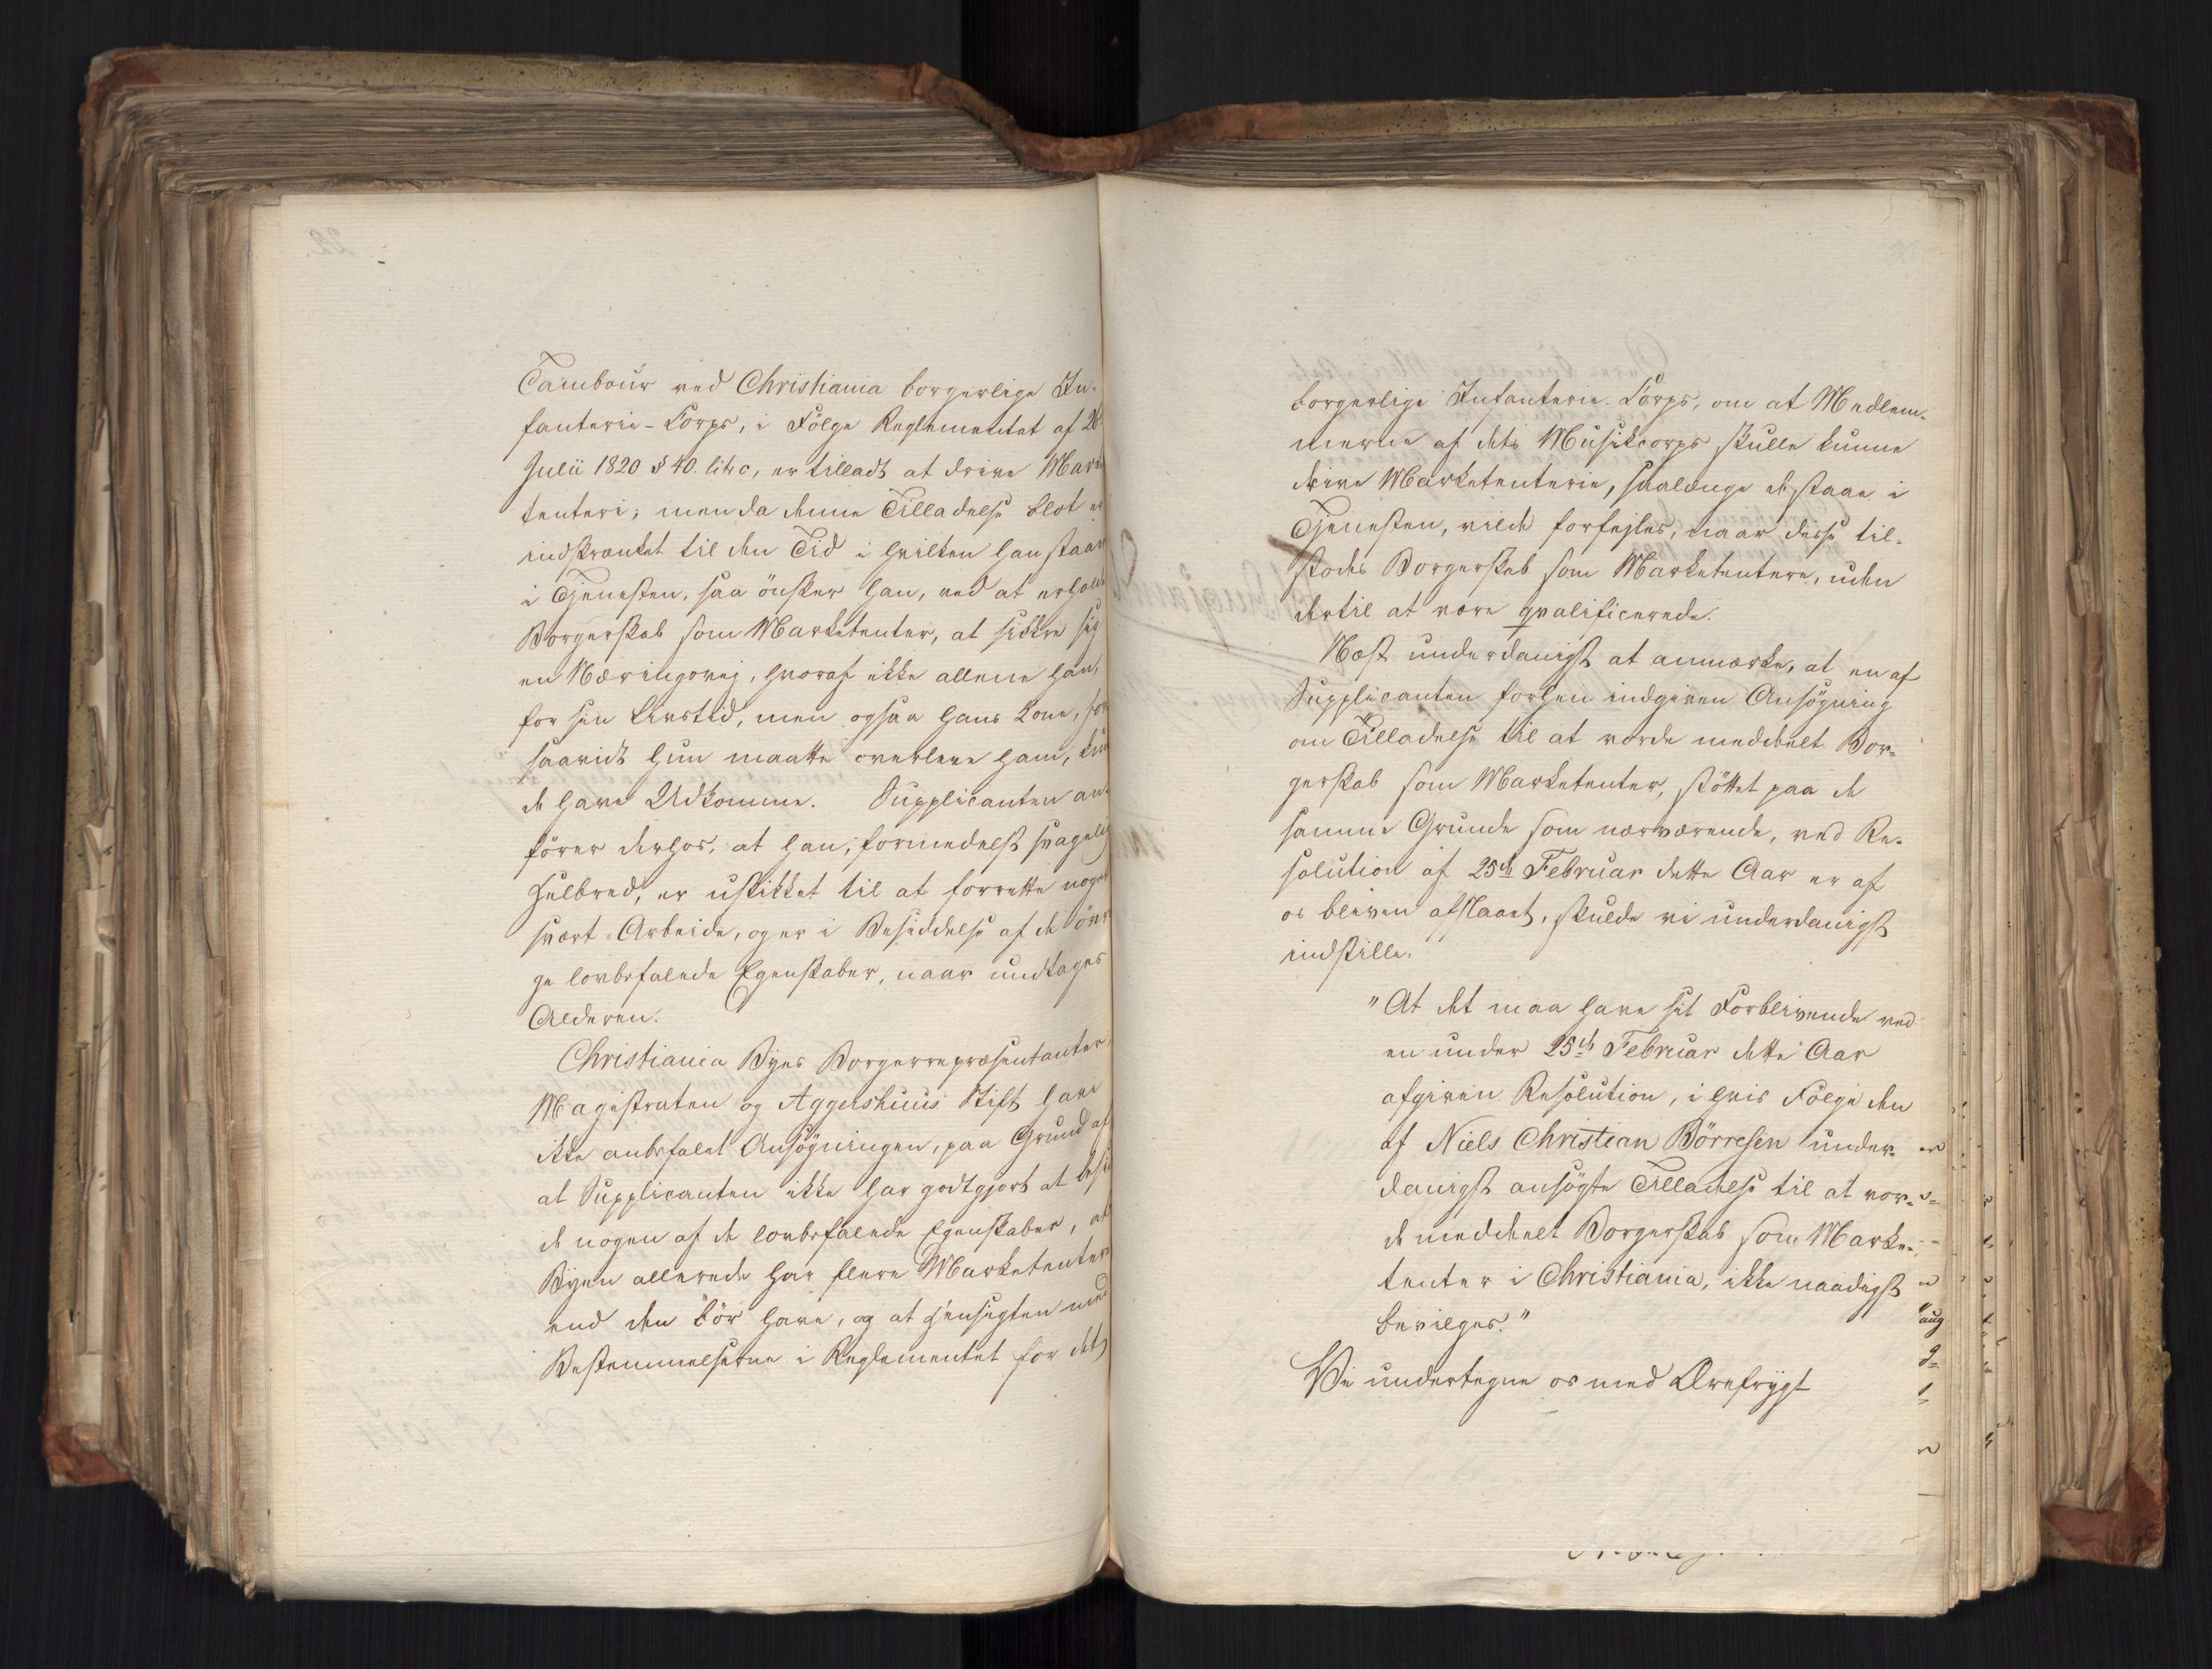 Tambour ved Christiania borgerlige In-
fanterie-Corps, i Fölge Reglementet af 26
Julii 1820 § 40. litr c, er tilladt at drive Marke
tenteri; men da denne Tilladelse blot er
indskrænket til den Tid i hvilken han staar
i Tjenesten, saa önsker han, ved at erholde
Borgerskab som Marketenter, at sikkre sig
en Næringsvej, hvoraf ikke allene han,
for sin Livstid, men ogsaa hans Kone, for
saavidt hun maatte overleve ham, kun
de have Udkomme. Supplicanten an-
förer derhos, at han, formedelst svagelig
Helbred, er uskikket til at forrette noget
svært Arbeide, og er i Besiddelse af de övri
ge lovbefalede Egenskaber, naar undtages
Alderen.
Christiania Byes Borgerrepræsentanter,
Magistraten og Aggershuus Stift have
ikke anbefalet Ansögningen, paa Grund af
at Supplicanten ikke har godtgjort at besid
de nogen af de lovbefalede Egenskaber, at
Byen allerede har flere Marketentere
end den bör have, og at Hensigten med
Bestemmelserne i Reglementet for det
borgerlige Infanterie-Corps, om at Medlem-
merne af dets Musikcorps skulle kunne
drive Marketenterie, saalænge de staae i
Tjenesten, vilde forfejles, naar disse til-
stodes Borgerskab som Marketentere, uden
dertil at være qvalificerede.
Næst underdanigst at anmærke, at en af
Supplicanten forhen indgiven Ansögning
om Tilladelse til at vorde meddeelt Bor-
gerskab som Marketenter, stöttet paa de
samme Grunde som nærværende, ved Re-
solution af 25de Februar dette Aar er af
os bleven afslaaet, skulde vi underdanigst
indstille:
"At det maa have sit Forblivende ved
en under 25de Februar dette Aar
afgiven Resolution, i hvis Fölge den
af Niels Christian Börresen under-
danigst ansögte Tilladelse til at vor-
de meddeelt Borgerskab som Marke-
tenter i Christiania, ikke naadigst
bevilges."
Vi undertegne os med Ærefrygt